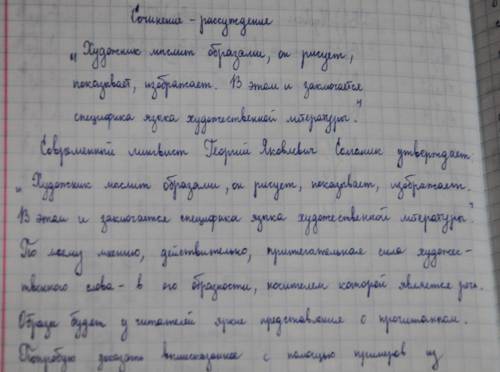 Сочинение - рассуждение
"Художник мыслит образами, он рисует,
показывает, изображает. В этом и заключается
специфика языка художественной литературы."
Современный лингвист Георгий Яковлевич Солганик утверждает:
"Художник мыслит образами, он рисует, показывает, изображает.
В этом и заключается специфика языка художественной литературы".
По моему мнению, действительно, притягательная сила художес-
твенного слова - в его образности, носителем которой является речь.
Образы будят у читателей яркие представления о прочитанном.
Попробую доказать вышесказанное с помощью примеров из